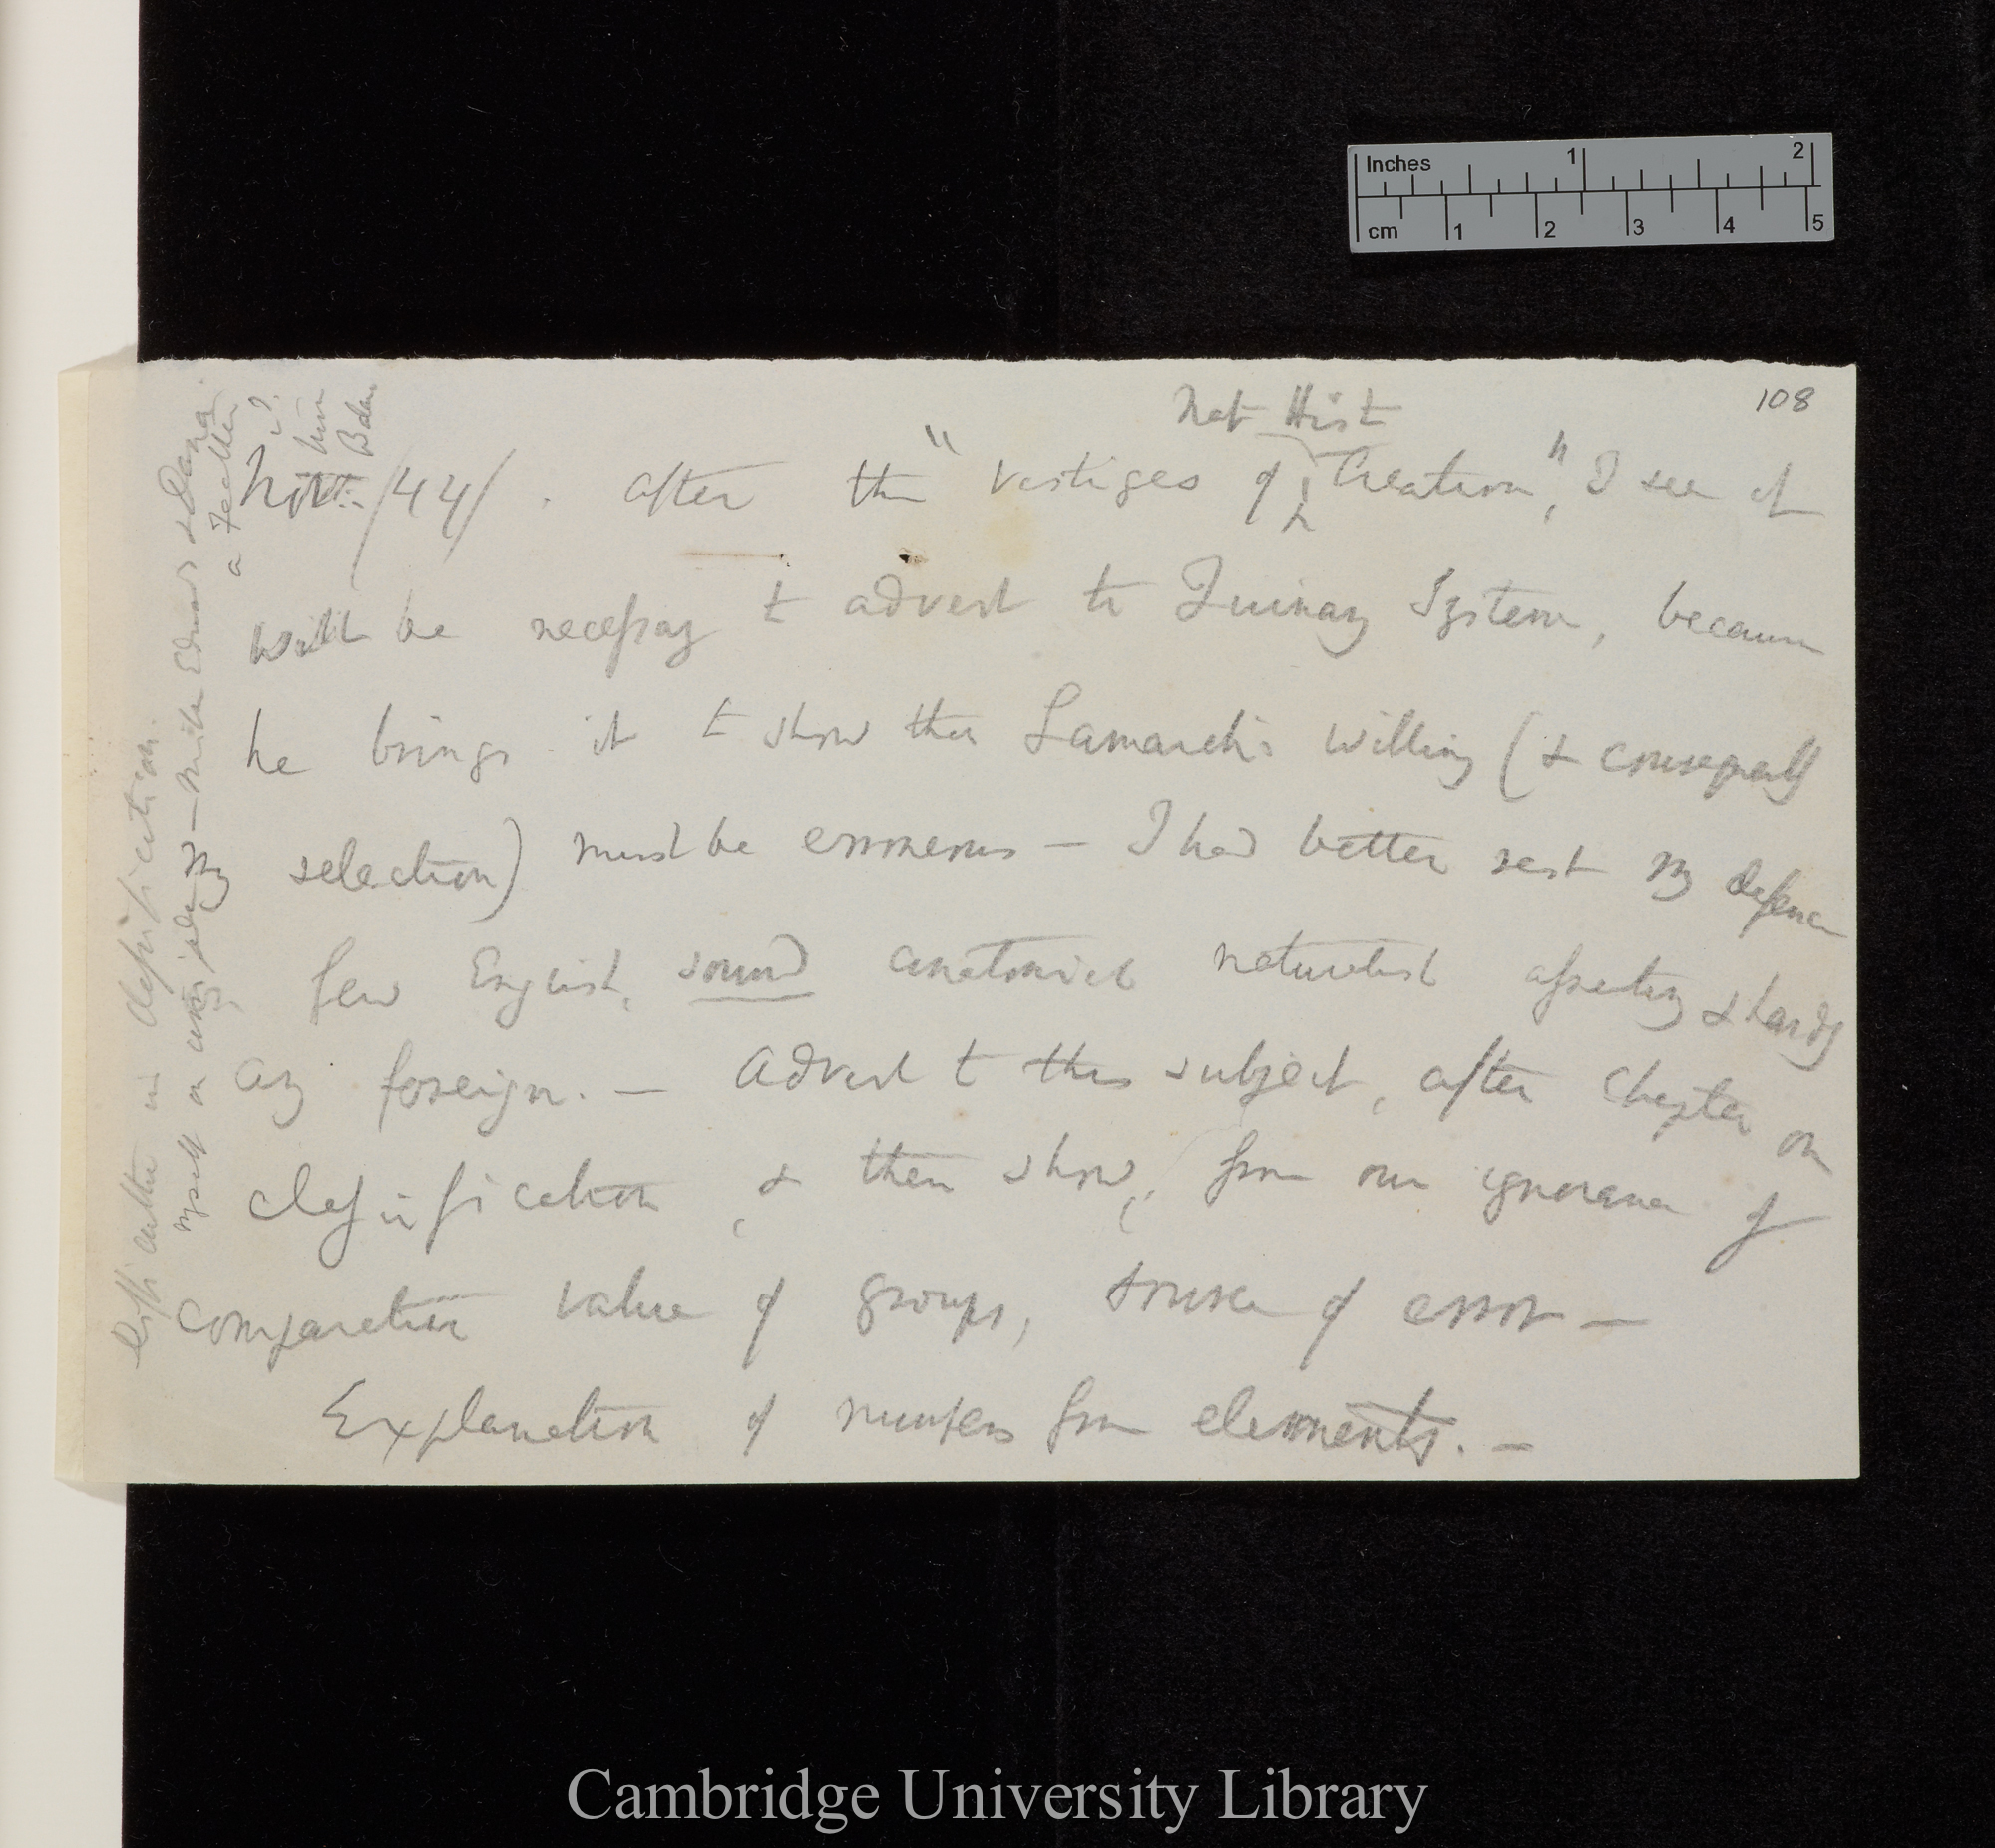 Inches 1 2
cm 1 2 3 4 5
108
Nat Hist
Nov. /44/. After the "Vestiges of Creation", I see it
will be necessary to advert to Quinary System, because
he brings it to show that Lamarck's willing (& consequently
selection) must be erroneous — I had better rest my defence
few English, sound anatomical naturalist assenting & hardly
any foreign. — Advert to this subject, after Chapter on
classification, & then show, from our ignorance of
comparative value of groups, source of error —
Explanation of numbers from elements. —
Difficulties in classification.
myself on my — Milne Edwards & Dana.
a Feather
Cambridge University Library